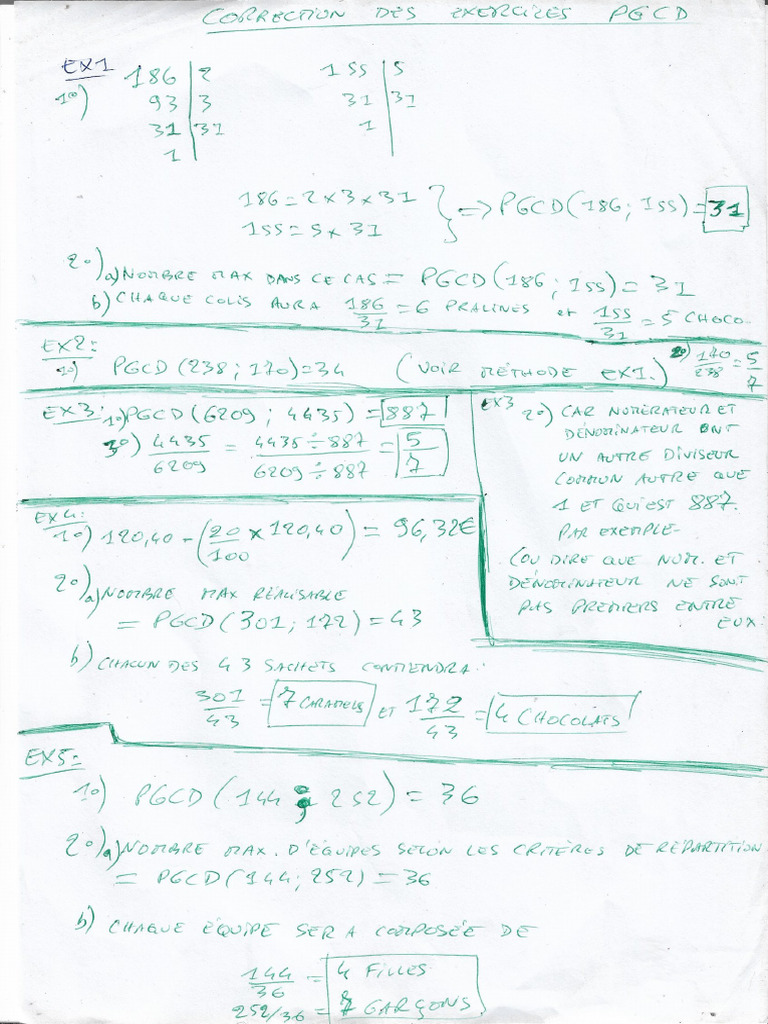 CORRECTION DES EXERCICES PGCD
EX1
1°) 186 | 2
93 | 3
31 | 31
1
155 | 5
31 | 31
1
186 = 2 x 3 x 31
155 = 5 x 31
} => PGCD(186; 155) = 31
2°) a) NOMBRE MAX DANS CE CAS = PGCD(186; 155) = 31
b) CHAQUE COLIS AURA 186/31 = 6 PRALINES et 155/31 = 5 CHOCO.
EX2:
1°) PGCD(238; 170) = 34 (VOIR MÉTHODE EX1.) 2°) 170/238 = 5/7
EX3: 1°) PGCD(6209; 4435) = 887
3°) 4435/6209 = 4435÷887/6209÷887 = 5/7
EX3
2°) CAR NUMÉRATEUR ET
DÉNOMINATEUR ONT
UN AUTRE DIVISEUR
COMMUN AUTRE QUE
1 ET QUI EST 887.
PAR EXEMPLE-
(OU DIRE QUE NUM. ET
DÉNOMINATEUR NE SONT
PAS PREMIERS ENTRE
EUX.
EX4:
1°) 120,40 - (20/100 x 120,40) = 96,32€
2°) a) NOMBRE MAX RÉALISABLE
= PGCD(301; 172) = 43
b) CHACUN DES 43 SACHETS CONTIENDRA:
301/43 = 7 CARAMELS ET 172/43 = 4 CHOCOLATS
EX5:
1°) PGCD(144; 252) = 36
2°) a) NOMBRE MAX. D'ÉQUIPES SELON LES CRITÈRES DE RÉPARTITION
= PGCD(144; 252) = 36
b) CHAQUE ÉQUIPE SERA COMPOSÉE DE
144/36 = 4 FILLES
252/36 = 7 GARÇONS.